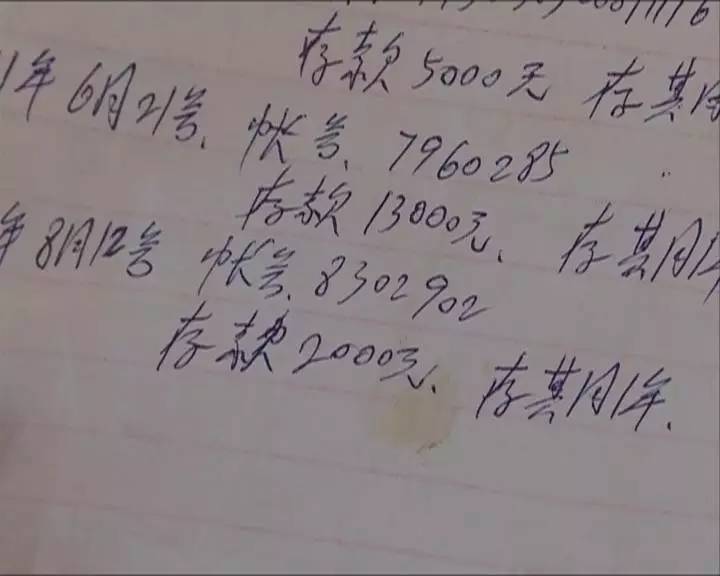 存款5000元 存期
1年6月21号、帐号、7960285
存款13000元、存期1年
年8月12号 帐号、8302902
存款2000元、存期1年、